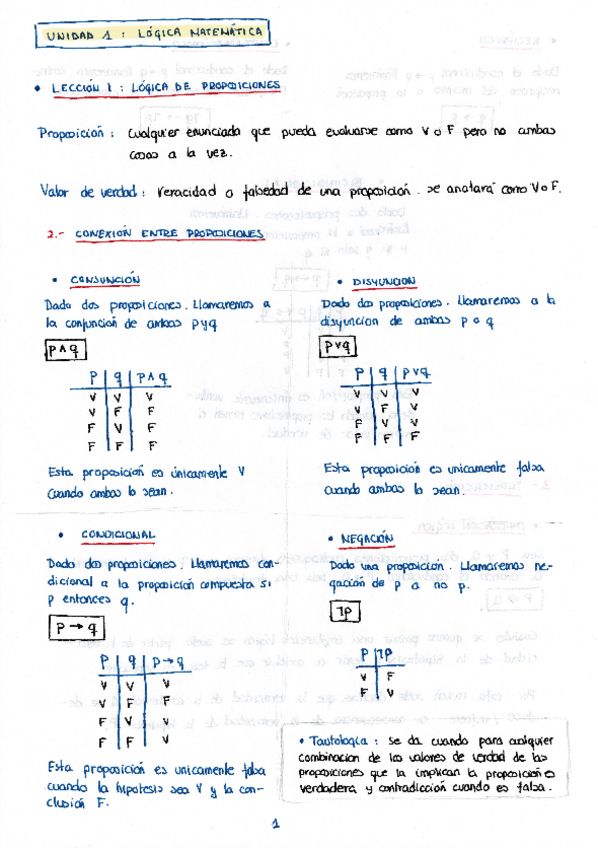 UNIDAD 1 : LÓGICA MATEMÁTICA
• LECCIÓN 1 : LÓGICA DE PROPOSICIONES
Proposición : Cualquier enunciado que pueda evaluarse como V o F pero no ambas
cosas a la vez.
Valor de verdad : Veracidad o falsedad de una proposición. se anotará como V o F.
2.- CONEXIÓN ENTRE PROPOSICIONES
• CONJUNCIÓN
Dada dos proposiciones. Llamaremos a
la conjunción de ambas p y q
p ∧ q
p | q | p ∧ q
V | V | V
V | F | F
F | V | F
F | F | F
Esta proposición es únicamente V
cuando ambas lo sean.
• DISYUNCION
Dada dos proposiciones. Llamaremos a la
disyuncion de ambas p o q
p v q
p | q | p v q
V | V | V
V | F | V
F | V | V
F | F | F
Esta proposición es unicamente falsa
cuando ambas lo sean.
• CONDICIONAL
Dada dos proposiciones. Llamaremos con-
dicional a la proposición compuesta si
p entonces q.
p → q
p | q | p → q
V | V | V
V | F | F
F | V | V
F | F | V
Esta proposición es unicamente falsa
cuando la hipotesis sea V y la con-
clusión F.
• NEGACIÓN
Dada una proposicion. Llamaremos ne-
gación de p a no p.
┐p
p | ┐p
V | F
F | V
• Tautologia : se da cuando para cualquier
combinacion de los valores de verdad de las
proposiciones que la implican la proposición es
verdadera y contradicción cuando es falsa.
1